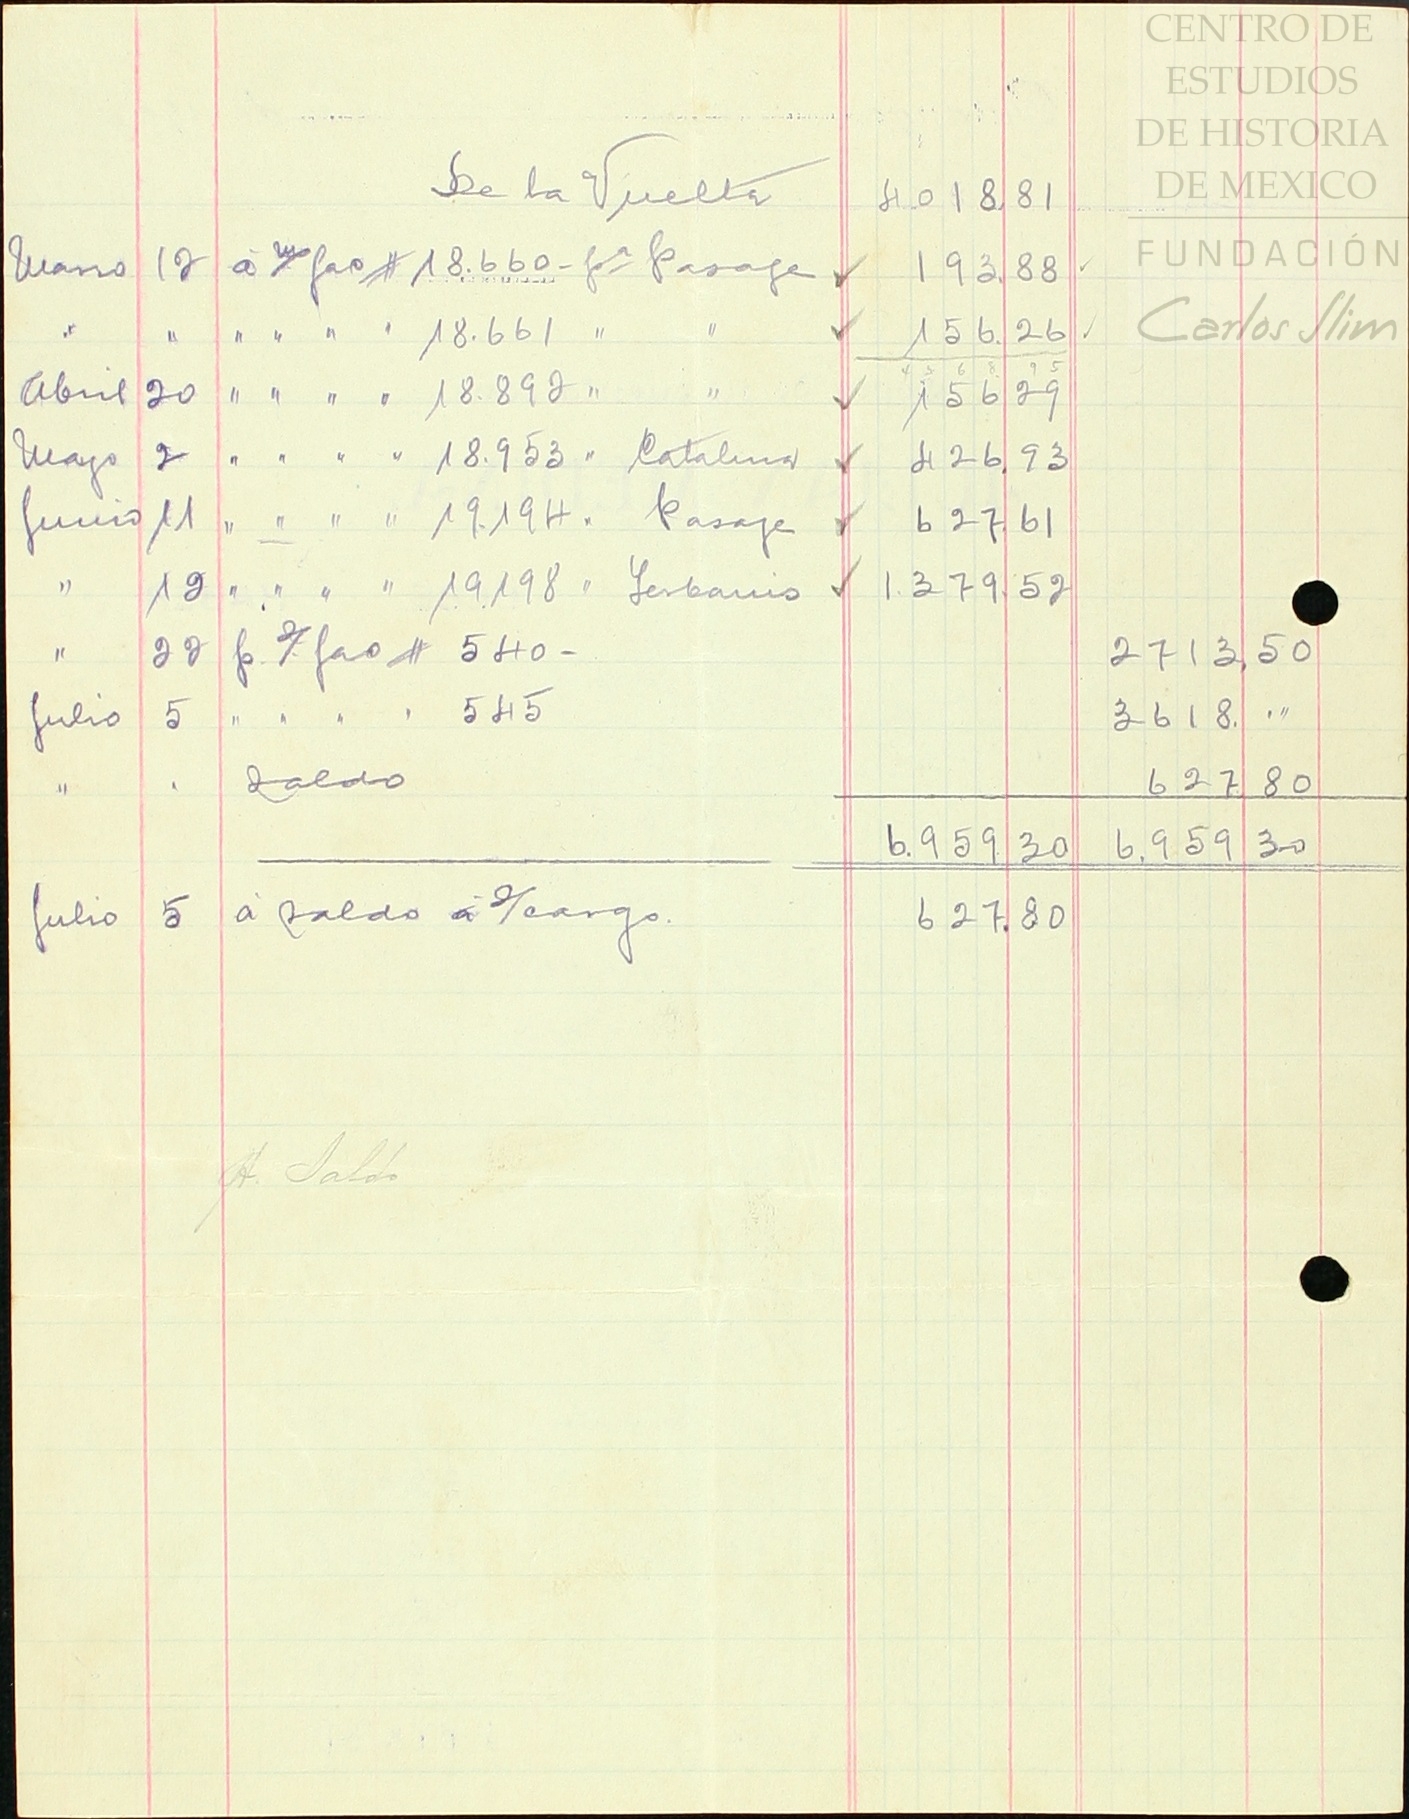 CENTRO DE
ESTUDIOS
DE HISTORIA
DE MEXICO
FUNDACIÓN
Carlos Slim
De la Vuelta 4018.81
Marzo 12 à m/ fac # 18.660 - pa Pasaje ✓ 193.88
" " " " " " 18.661 " " ✓ 156.26
4 3 6 8 9 5
Abril 20 " " " " 18.892 " " ✓ 156 29
Mayo 2 " " " " 18.953 " Catalina ✓ 426.93
Junio 11 " " " " 19.194 " Pasaje ✓ 627.61
" 12 " " " " 19.198 " Yerbanis ✓ 1.379.52
" 22 p. s/ fac # 540 - 2713.50
Julio 5 " " " " 545 3618. "
" " Saldo 627 80
6.959 30 6.959 30
Julio 5 à Saldo à s/cargo. 627.80
A. Saldo